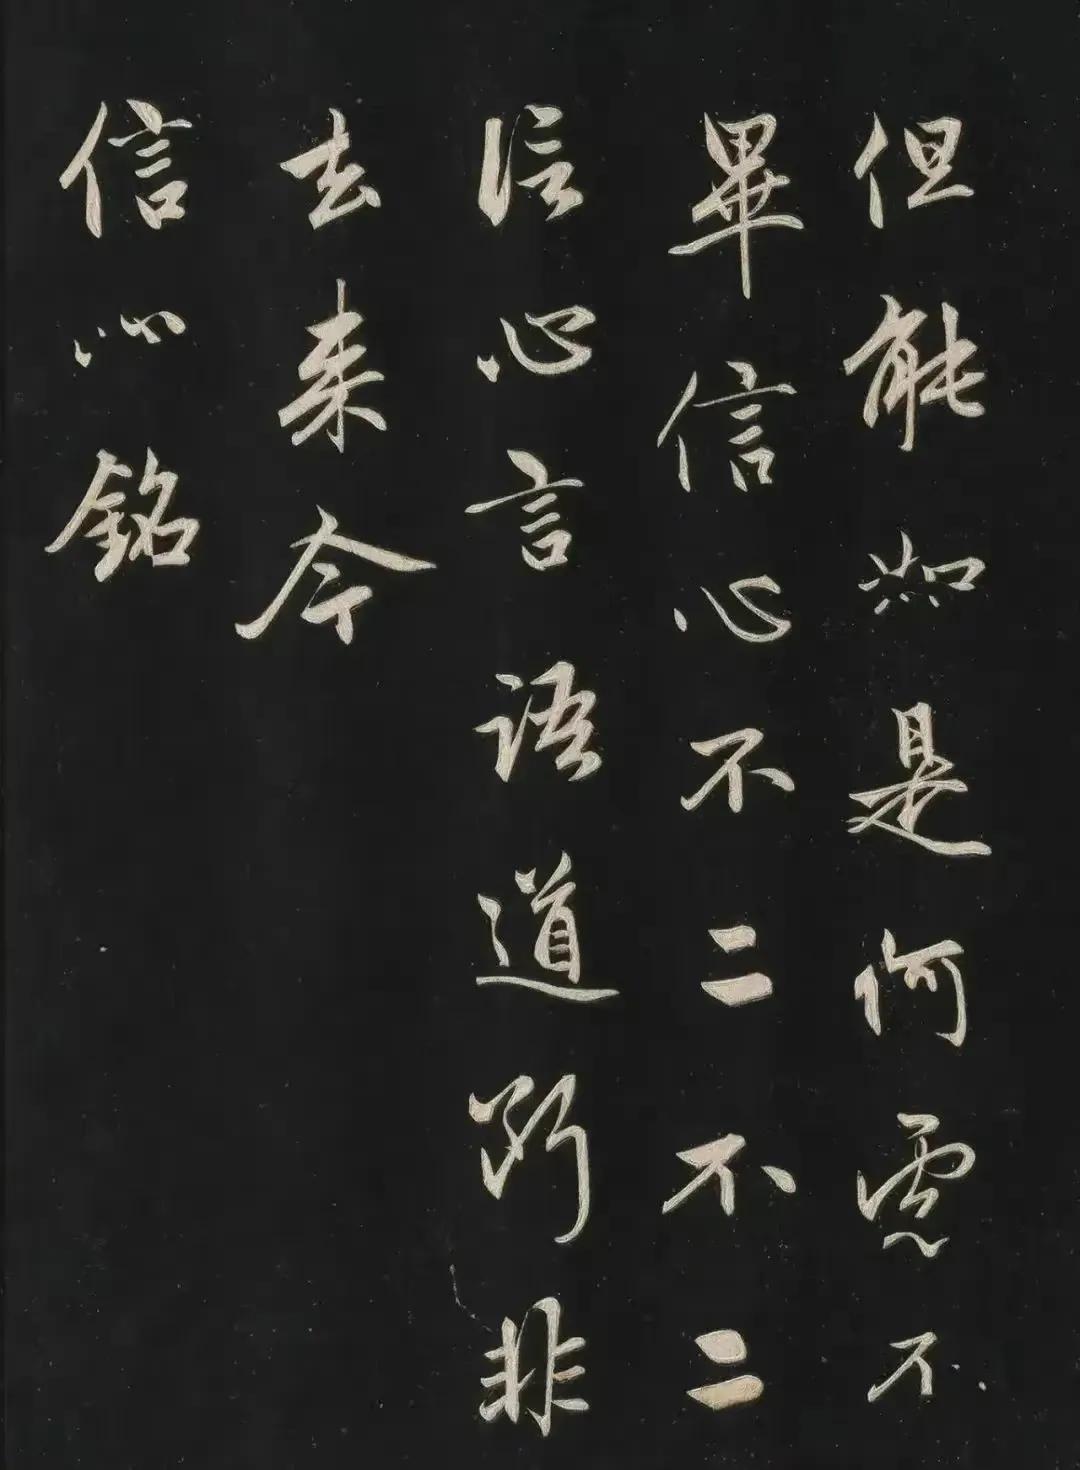 但能如是何慮不
畢信心不二不二
信心言語道斷非
去来今
信心銘